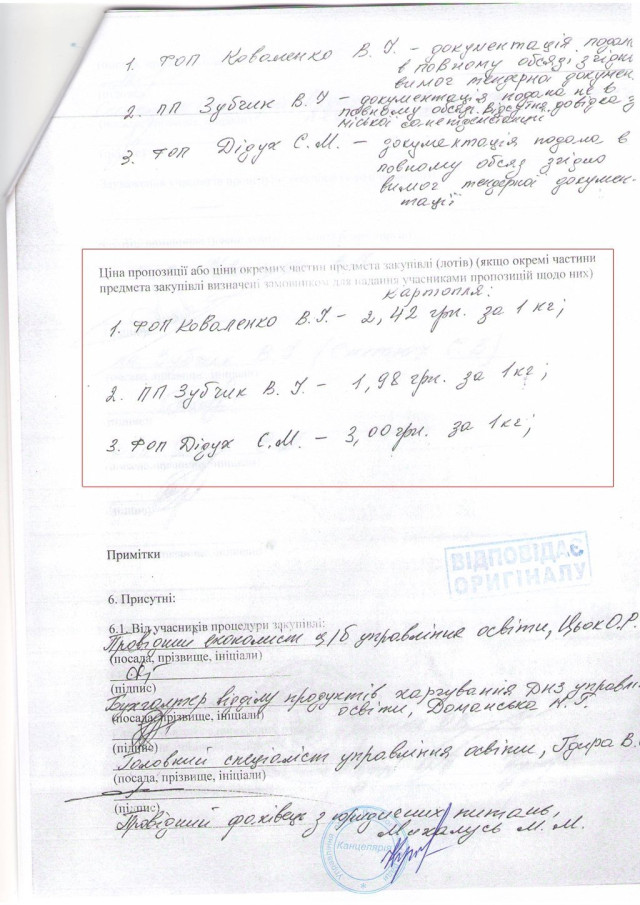 1. ФОП Коваленко В.І. – документація подан
в повному обсязі згідн
вимог тендерної докумен
2. ПП Зубчик В.І – документація подана не в
повному обсязі. Відсутня довідка з
міської санепідемстанції
3. ФОП Дідух С.М. – документація подана в
повному обсяз згідно
вимог тендерної докумен-
тації
Ціна пропозиції або ціни окремих частин предмета закупівлі (лотів) (якщо окремі частини
предмета закупівлі визначені замовником для надання учасниками пропозицій щодо них)
картопля:
1. ФОП Коваленко В.І. – 2,42 грн. за 1 кг;
2. ПП Зубчик В.І. – 1,98 грн. за 1 кг;
3. ФОП Дідух С.М. – 3,00 грн. за 1 кг;
Примітки
ВІДПОВІДАЄ
ОРИГІНАЛУ
6. Присутні:
6.1. Від учасників процедури закупівлі:
Провідний економіст ц/б управління освіти, Цьок О.Р.
(посада, прізвище, ініціали)
(підпис)
Бухгалтер відділу продуктів харчування ДНЗ управлі
(посада, прізвище, ініціали) освіти, Доманська Н.Г.
(підпис)
Головний спеціаліст управління освіти, В.
(посада, прізвище, ініціали)
(підпис)
Провідний фахівець з юридичних питань,
Михалусь М.М.
Канцелярія